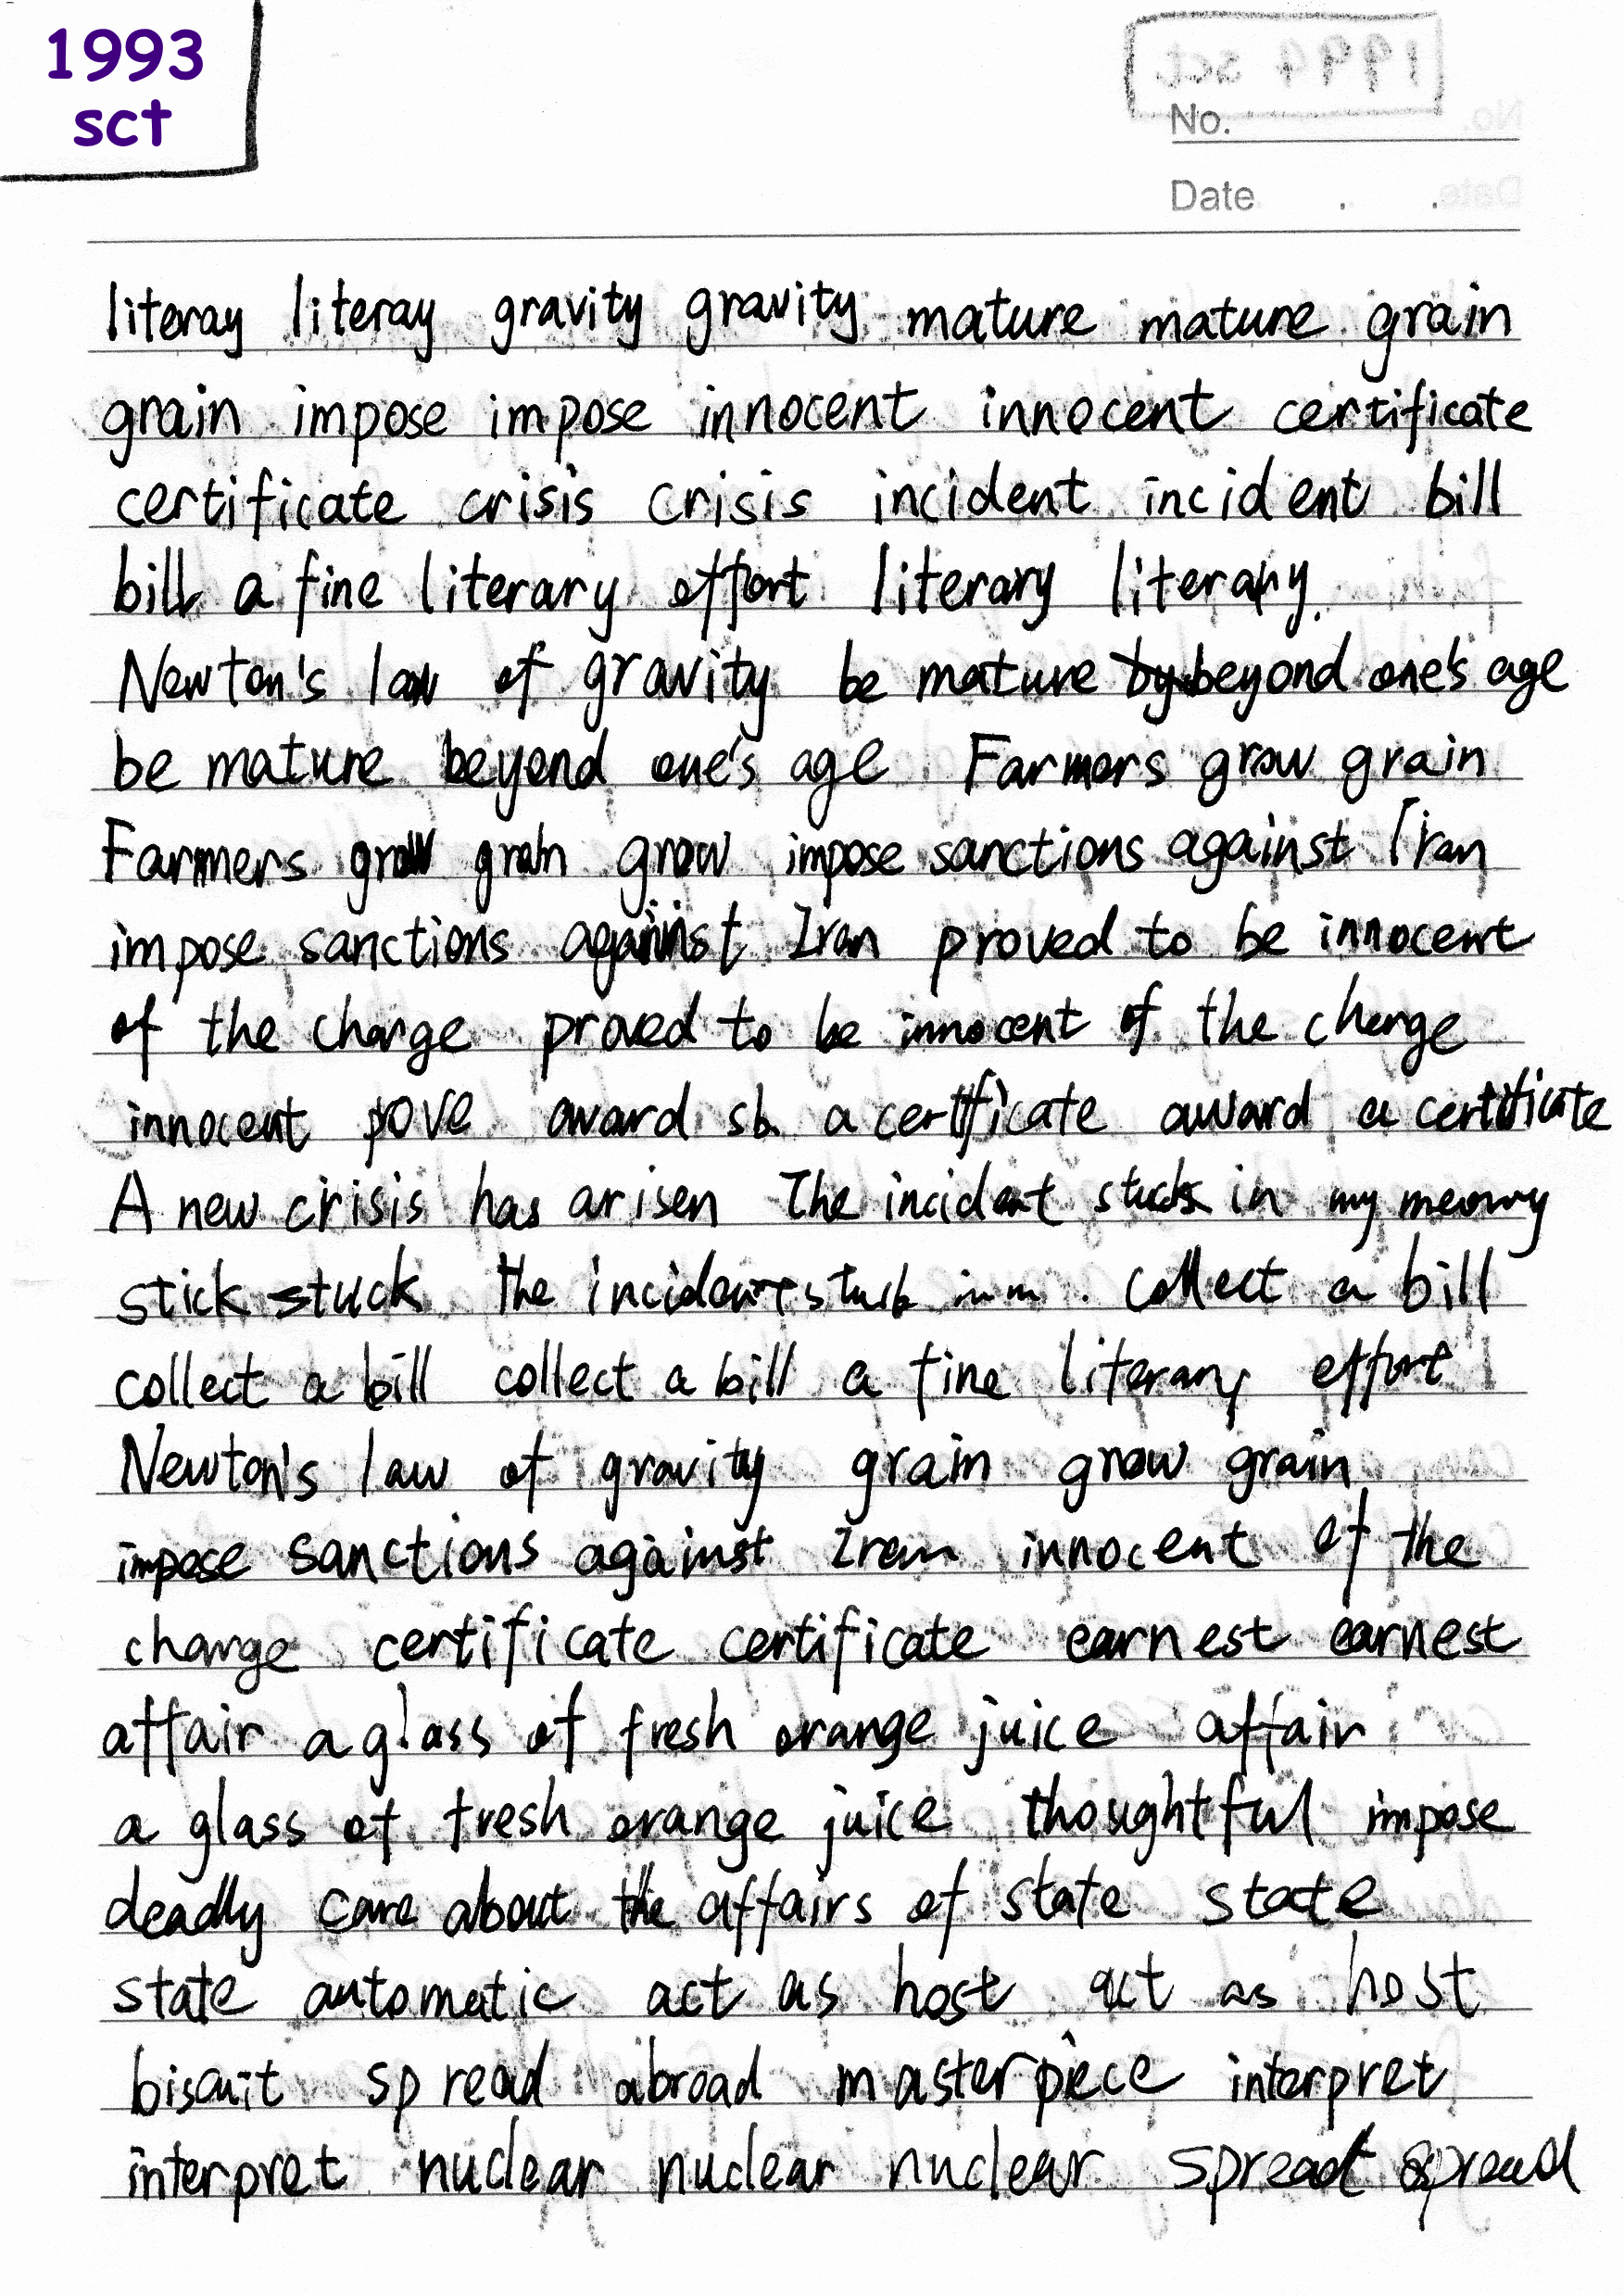 1993
sct
No.
Date . .
literay literay gravity gravity mature mature grain
grain impose impose innocent innocent certificate
certificate crisis crisis incident incident bill
bill a fine literary effort literary literary.
Newton's law of gravity be mature by beyond one's age
be mature beyond one's age Farmers grow grain
Farmers grow grain grow impose sanctions against Iran
impose sanctions against Iran proved to be innocent
of the charge proved to be innocent of the charge
innocent pove award sb. a certificate award a certificate
A new crisis has arisen The incident stuck in my
stick stuck the stuck in m . collect a bill
collect a bill collect a bill a fine literary effort
Newton's law of gravity grain grow grain
impose sanctions against Iran innocent of the
charge certificate certificate earnest earnest
affair a glass of fresh orange juice affair
a glass of fresh orange juice thoughtful impose
deadly care about the affairs of state state
state automatic act as host act as host
biscuit spread abroad masterpiece interpret
interpret nuclear nuclear nuclear spread spread